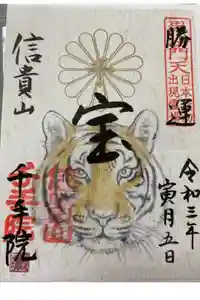 勝運
門天
日本
出現
令和三年
寅月五日
宝
信貴山
千手院